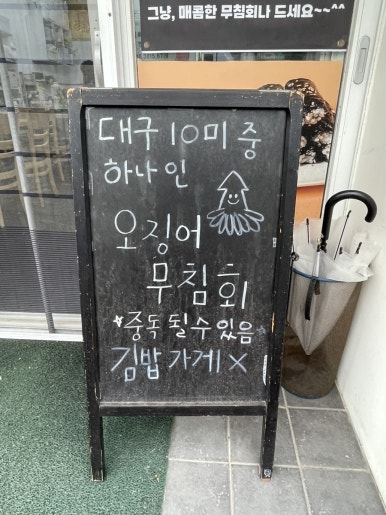 그냥, 매콤한 무침회나 드세요~~^^
대구 10미 중
하나인
오징어
무침회
*중독될수있음*
김밥가게 X